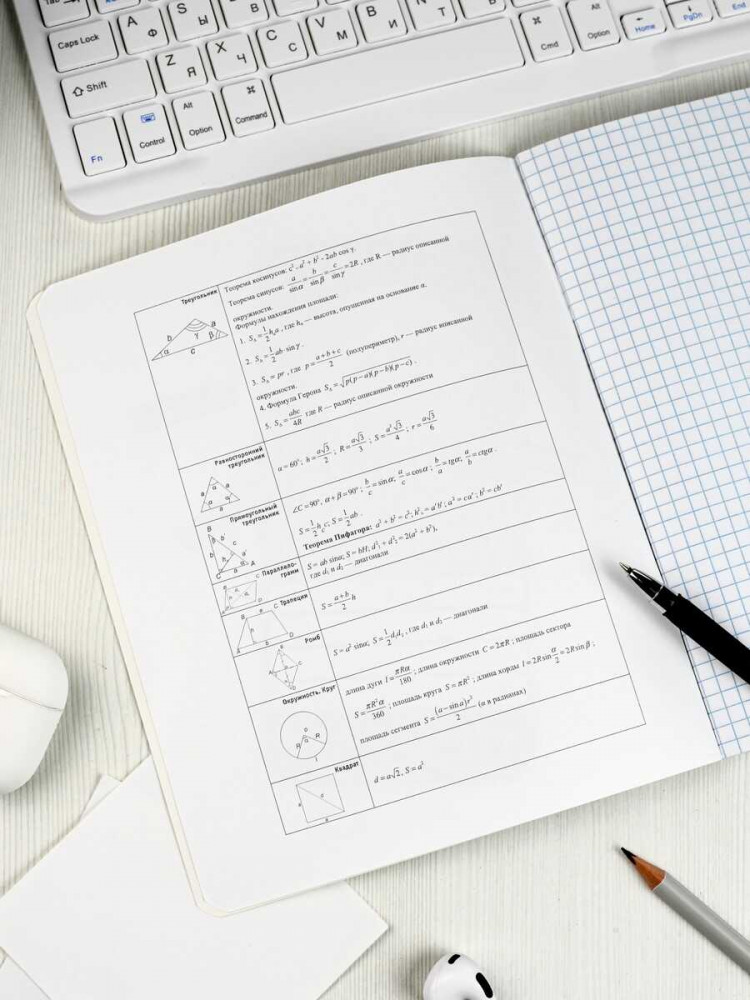 Tab
Caps Lock A Ф S Ы D F V B И N Т Cmd Alt Option Home PgDn End
Shift Z Я X Ч C С V М
Fn Control Alt Option Command
Треугольник
b a γ α β c
Теорема косинусов: c² - a² + b² - 2ab cos γ.
Теорема синусов: a/sinα = b/sin β = c/sin γ = 2R, где R — радиус описанной
окружности.
Формулы нахождения площади:
1. Sₐ = 1/2 hₐa, где hₐ — высота, опущенная на основание a.
2. Sₐ = 1/2 ab·sin γ.
3. Sₐ = pr, где p = (a+b+c)/2 (полупериметр), r — радиус вписанной
окружности.
4. Формула Герона Sₐ = √(p(p−a)(p−b)(p−c)).
5. Sₐ = abc/4R где R — радиус описанной окружности
Равносторонний
треугольник
α = 60°; h = a√3/2; R = a√3/3; S = a²√3/4; r = a√3/6
Прямоугольный
треугольник
∠C = 90°, α + β = 90°; b/c = sinα; a/c = cosα; b/a = tgα; a/b = ctgα.
S = 1/2 h c; S = 1/2 ab.
Теорема Пифагора: a² + b² = c²; a² = ca'; b² = cb'
Параллело-
грамм
S = ab sinα; S = bH; d₁² + d₂² = 2(a² + b²),
где d₁ и d₂ — диагонали
Трапеция
S = (a+b)/2 h
Ромб
S = a² sinα; S = 1/2 d₁d₂, где d₁ и d₂ — диагонали
Окружность. Круг
длина дуги l = πRα/180; длина окружности C = 2πR; площадь сектора
S = πR²α/360; площадь круга S = πR²; длина хорды l = 2Rsin α/2 = 2Rsin β;
площадь сегмента S = (α − sin α)r²/2 (α в радианах)
Квадрат
d = a√2, S = a²